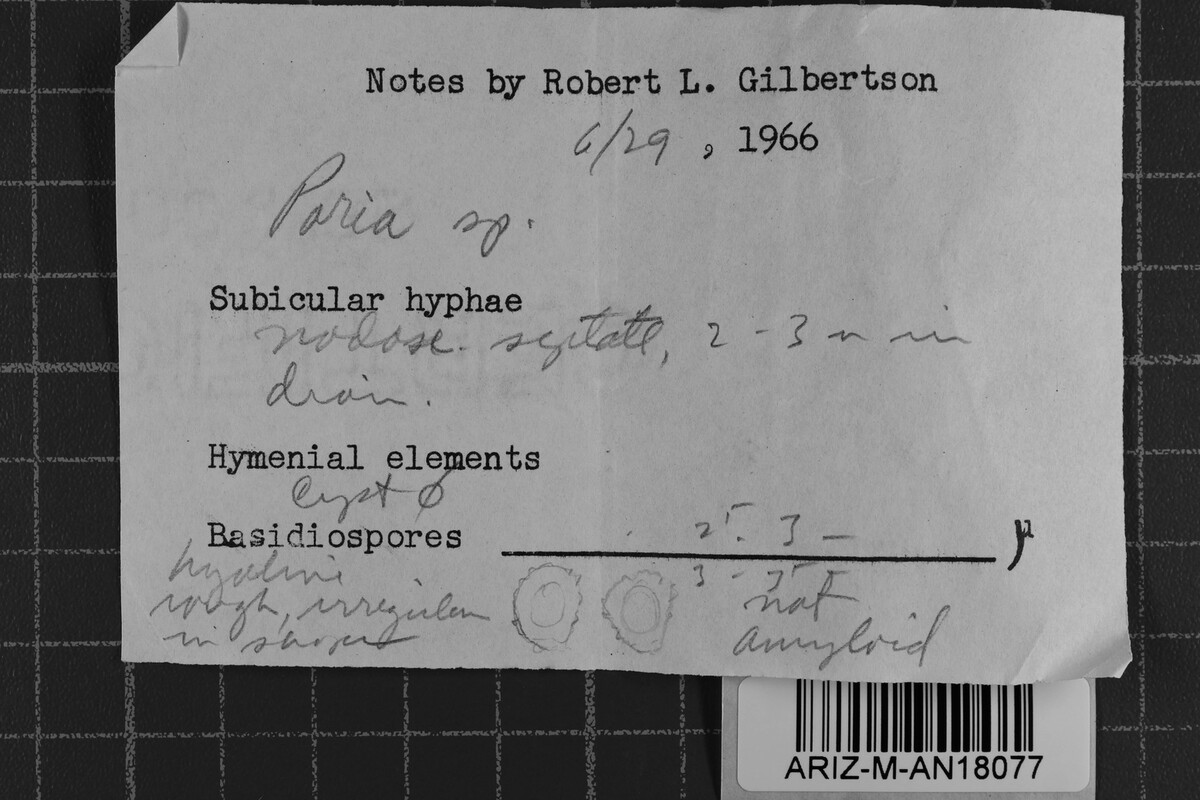 Notes by Robert L. Gilbertson
6/29, 1966
Poria sp.
Subicular hyphae
nodose-septate, 2-3 μ in
diam.
Hymenial elements
Cyst ∅
Basidiospores 3 μ
hyaline
rough, irregular
in shape
not
amyloid
ARIZ-M-AN18077